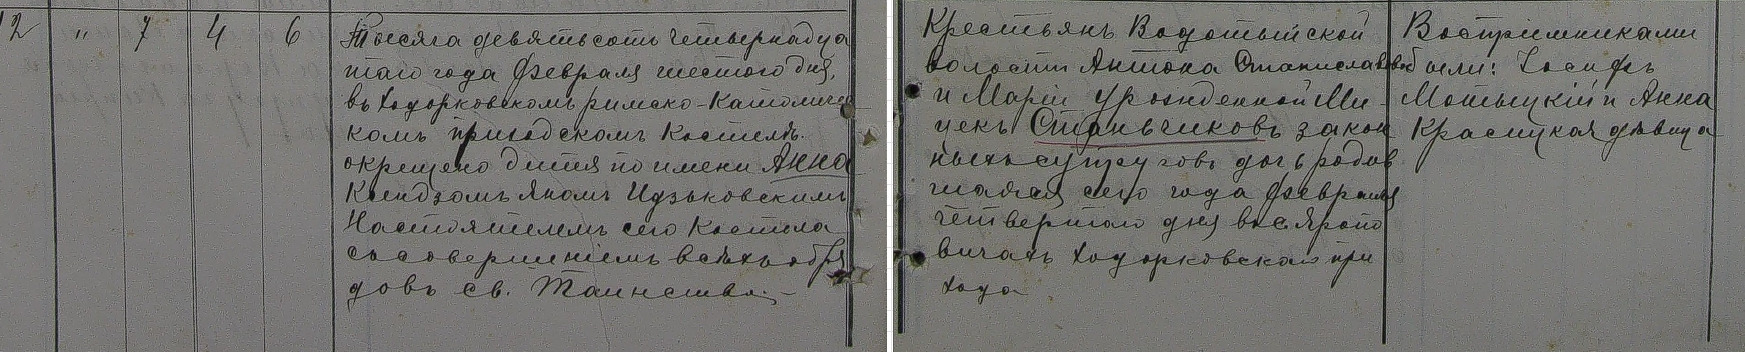 12 " 7 4 6
Тысяча девятьсотъ четырнадца
таго года Февраля шестого дня,
въ Ходорковскомъ римско-католичес
комъ приходскомъ Костелѣ
окрещено дитя по имени Анна
Ксендзомъ Яномъ Идзьковскимъ
Настоятелемъ сего Костела
съ совершеніемъ всѣхъ обря
довъ св. Таинства.
Крестьянъ Водотыйской
волости Антона Станиславова
и Маріи урожденной Ми-
цекъ Станьчиковъ закон
ныхъ супруговъ дочь родив
шаяся сего года Февраля
четвертаго дня въ с. Яропо
вичахъ Ходорковскаго при
хода
Воспріемниками
были: Іосифъ
Мотыцкій и Анна
Красицкая дѣвица